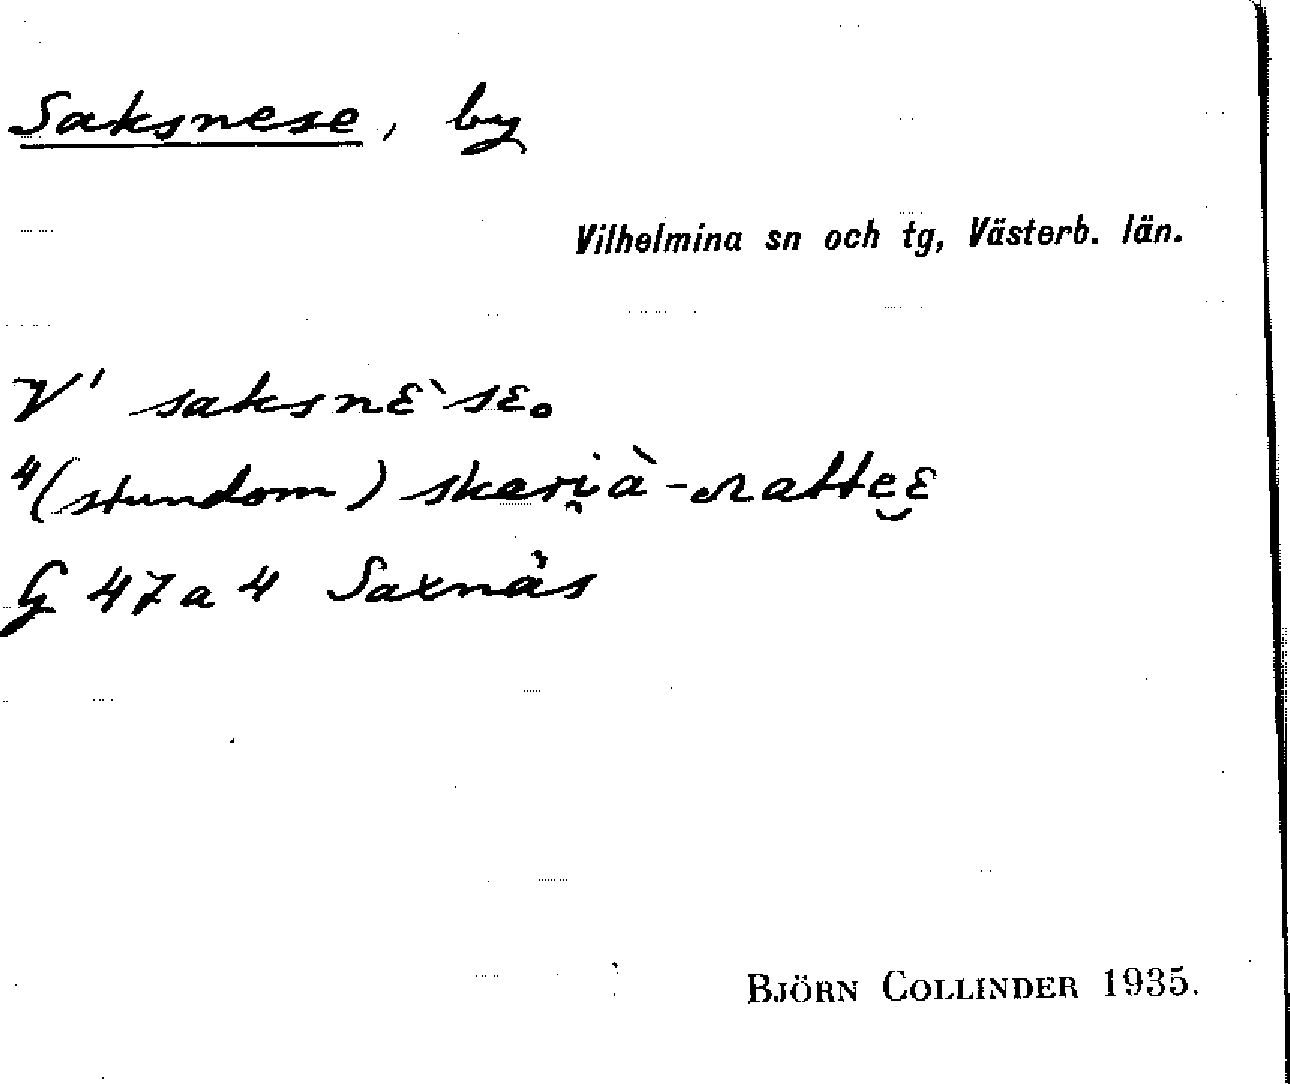 Saksnese, by
Vilhelmina sn och tg, Västerb. län.
V' saksnɛ̀sɛ.
4 (stundom)
G 47 a 4 Saxnäs
BJÖRN COLLINDER 1935.